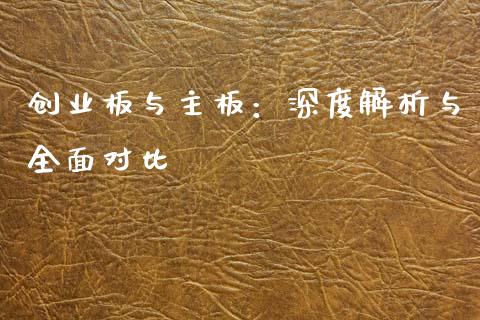 创业板与主板：深度解析与
全面对比